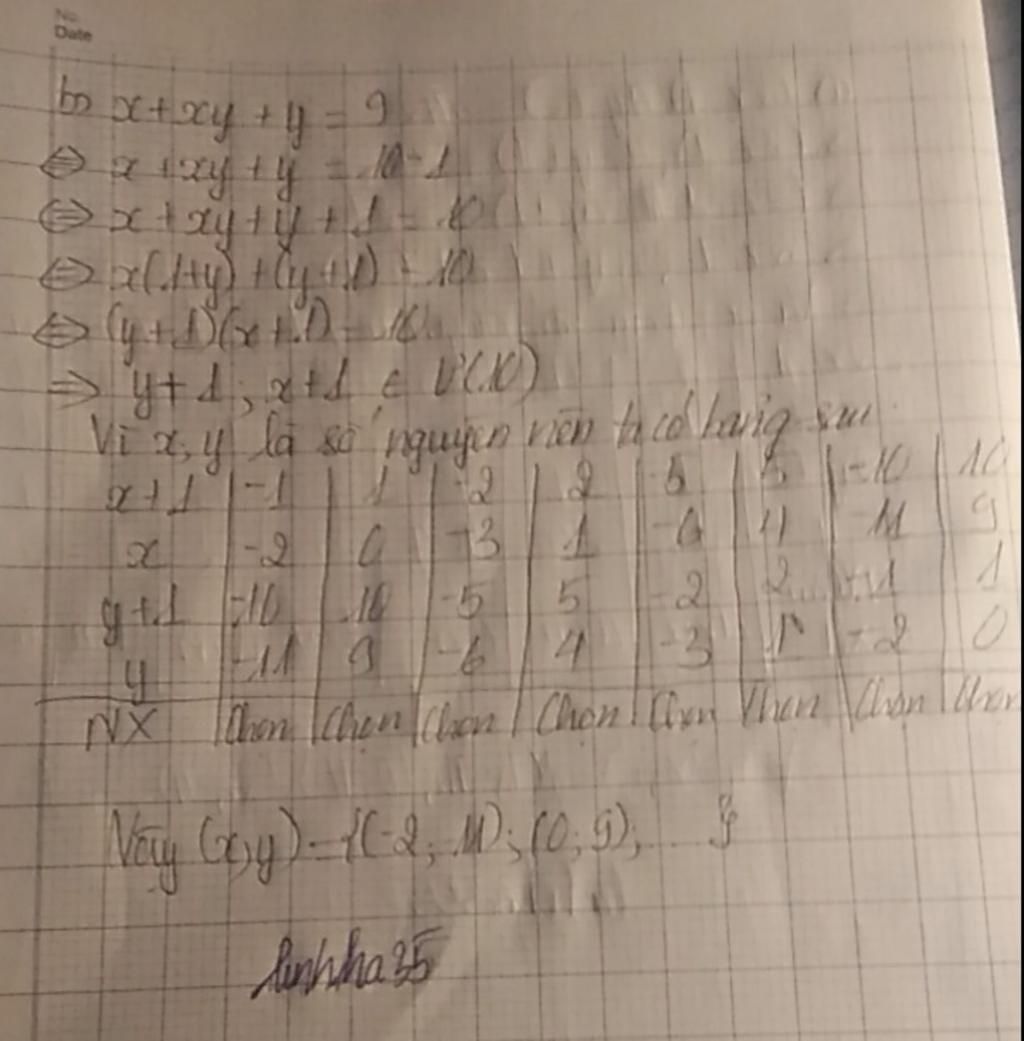 No.
Date
b, x+xy+y = 9
⇔ x+xy+y = 10-1
⇔ x+xy+y+1 = 10
⇔ x(1+y)+(y+1) = 10
⇔ (y+1)(x+1) = 10
⇒ y+1; x+1 ∈ Ư(10)
Vì x, y là số nguyên nên ta có bảng sau
x+1 | -1 | 1 | -2 | 2 | -5 | 5 | -10 | 10
x | -2 | 0 | -3 | 1 | -6 | 4 | -11 | 9
y+1 | -10 | 10 | -5 | 5 | -2 | 2 | -1 | 1
y | -11 | 9 | -6 | 4 | -3 | 1 | -2 | 0
NX | Chọn | Chọn | Chọn | Chọn | Chọn | Chọn | Chọn | Chọn
Vậy (x,y) = {(-2; 11); (0; 9); ... }
linhha35